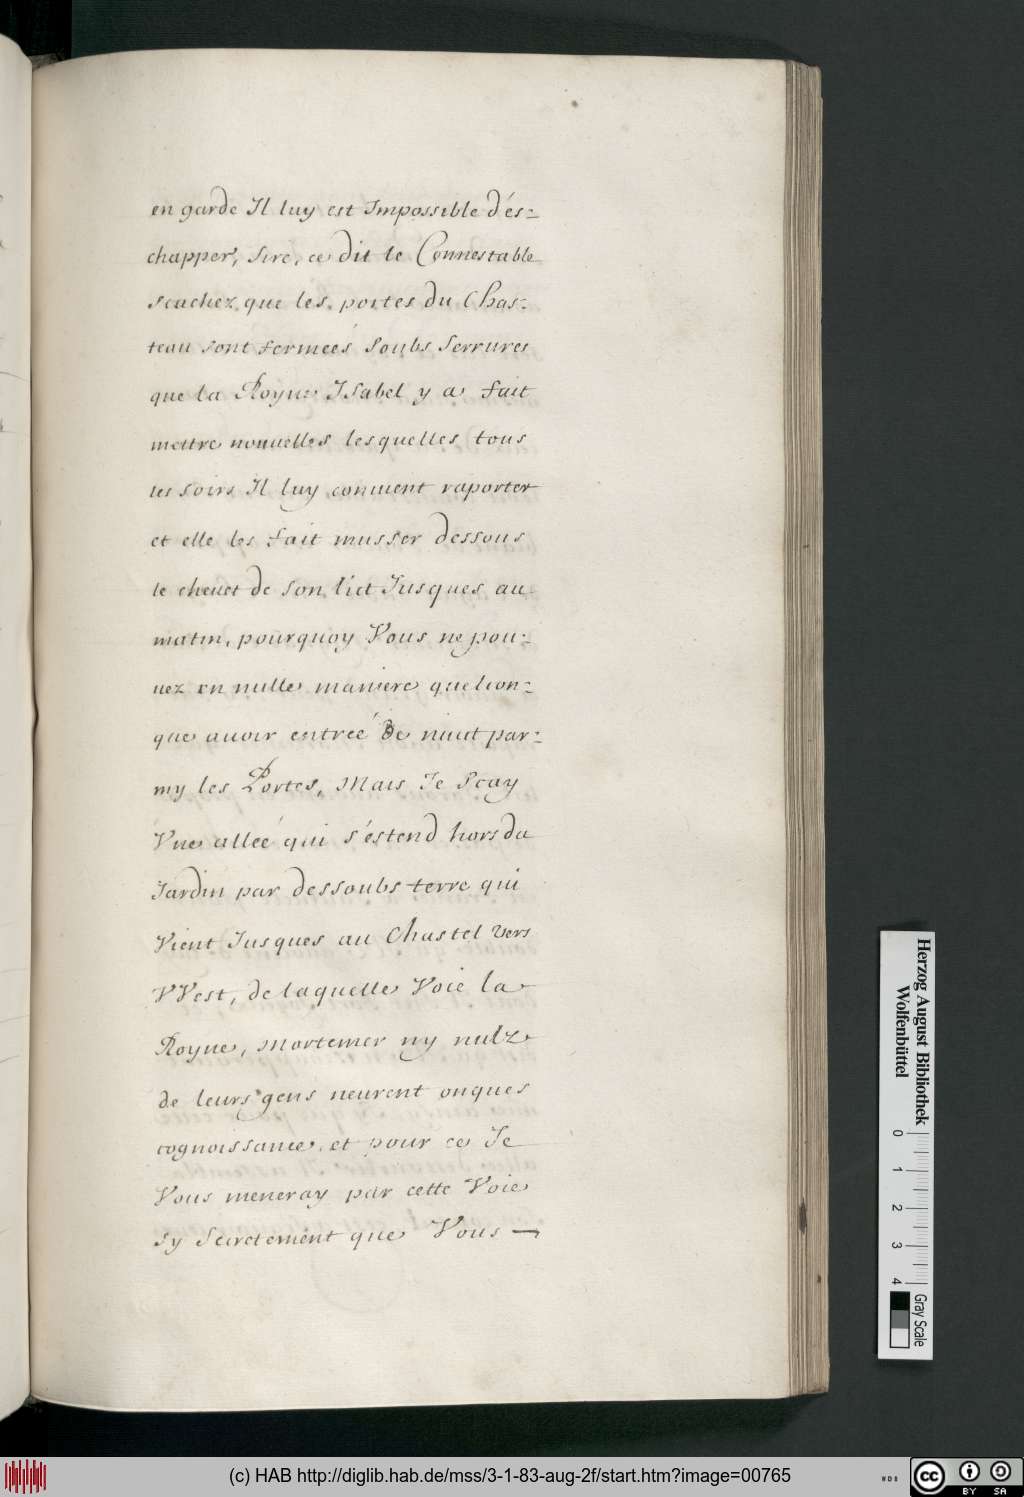 en garde Il luy est Impossible d'és-
chapper, Sire, ce dit le Connestable
scachez, que les, portes du Chas-
teau sont fermeés soubs serrures
que la Royne Isabel y a fait
mettre nouuelles lesquelles tous
les soirs Il luy conuient raporter
et elle les fait musser dessous
le cheuet de son lict Jusques au
matin, pourquoy Vous ne pou-
uez en nulle maniere quelcon-
que auoir entreé de nuict par-
my les Portes, Mais Je scay
Vne alleé qui s'éstend hors du
Jardin par dessoubs terre qui
Vient Jusques au Chastel vers
VVest, de laquelle Voie la
Royne, Mortemer ny nulz
de leurs gens neurent onques
cognoissance, et pour ce Je
Vous meneray par cette Voie
sy secretement que Vous —
Herzog August Bibliothek
Wolfenbüttel
0 1 2 3 4
Gray Scale
(c) HAB http://diglib.hab.de/mss/3-1-83-aug-2f/start.htm?image=00765
WDB
cc BY SA